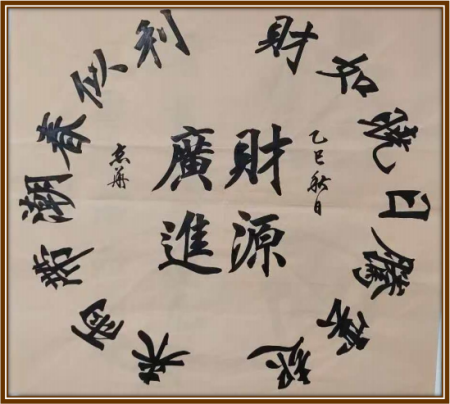 財如晓日騰雲起
利似春潮帶雨来
財源
廣進
乙巳秋日